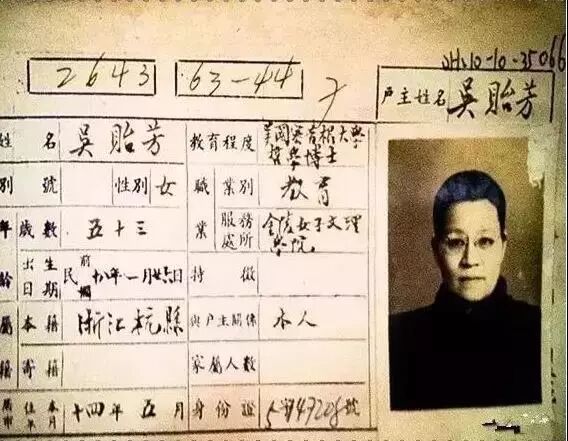 2643 63-44
戶主姓名 吳貽芳
姓名 吳貽芳 教育程度 美國密苜根大學哲學博士
別號 性別 女 職業 業別 教育
年齡 歲數 五十三 服務處所 金陵女子文理學院
出生日期 民前 年一月廿六日 特徵
屬籍 本籍 浙江杭縣 與戶主關係 本人
寄籍 家屬人數
本市住年月 十四年五月 身份證 字 號